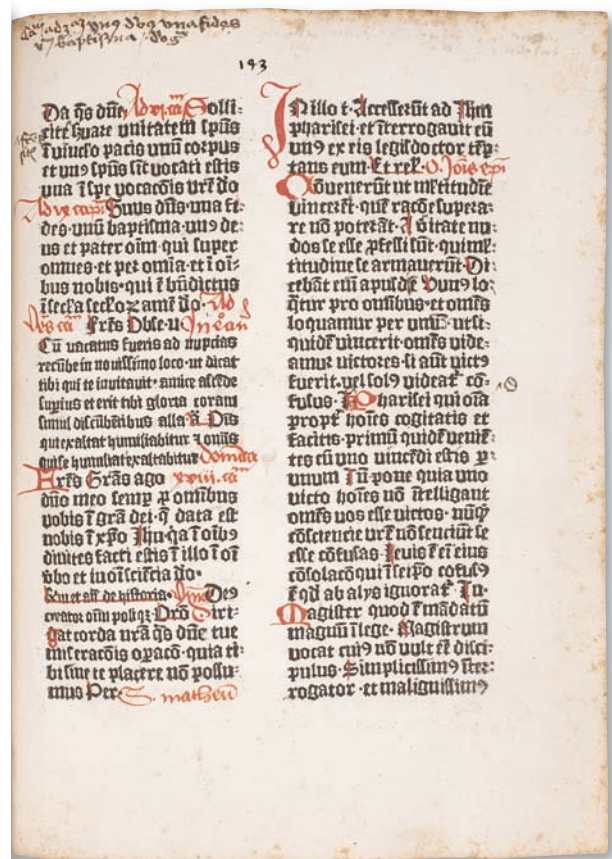 Cam adz vnꝰ dnꝰ vna fides
vnū baptisma
143
Da qs̄ dn̄e Ad vi cam̄ Solli⸗
cite seruare vnitatem spūs
ī vinclo pacis vnū corpus
et vnꝰ spūs sic̄ vocati estis
vna ī spe vocacōis vrē do
Ad ix capi Vnus dn̄s vna fi⸗
des vnū baptisma vnꝰ de⸗
us et pater oīm qui super
omnes·et per om̄ia·et ī oī⸗
bus nobis·qui ē bn̄dictus
ī secła secłoꝝ amē do· Ad
Frēs Obse In euan
Cū vocatus fueris ad nupcias
recūbe in nouissimo loco·ut dicat
tibi qui te inuitauit·amice ascēde
suꝑius et erit tibi gloria coram
simul discūbētibus alla Om̄s
qui exaltat humiliabitur ⁊ omīs
qui se humiliat exaltabitur Domica
Frēs Grās ago xviii cam̄
deo meo semꝑ ꝓ omībus
vobis ī grā dei·q̄ data est
nobis ī xp̄o Jhu·qa ī oībꝰ
diuites facti estis ī illo ī oī
vbo et in oī sciēcia do·
de historia· Deꝰ
creator oīm poliqꝫ Orō Diri⸗
gat corda nrā qs̄ dn̄e tue
miseracōis oꝑacō·quia ti⸗
bi sine te placere nō possu⸗
mus Per S. matheū
IN illo t̄·Accesserūt ad Jhm
pharisei·et īterrogauit eū
vnꝰ ex eis legis doctor tēp⸗
tans eum·Et rel· O. Jois epi
COnuenerūt ut mltitudīe
vincerēt·quē racōe supera⸗
re nō poterāt·A v̄itate nu⸗
dos se esse ꝓfessi sūt·qui ml̄⸗
titudine se armauerūt·Di⸗
cebāt eī apud se Vnꝰ lo⸗
q̄tur pro omībus·et om̄s
loquamur per vnū·ut si
quidē vincerit·om̄s vide⸗
amur victores·si aūt victꝰ
fuerit·vel solꝰ videat̄ cō⸗
fusus· O Pharisei qui oīa
propt̄ hoīes cogitatis et
facitis·primū quidē veniē⸗
tes cū vno vincēdi estis ꝑ
vnum Tū pone quia vno
victo hoīes nō ītelligant
om̄s vos esse victos·nūqd
cōsciencie vrē nō senciūt se
esse cōfusas·Leuis ē eī eius
cōsolacō qui ī se ipō cōfusꝰ
ē qd ab alys ignorat̄ Iu·
Magister quod ē mādatū
magnū ī lege·Magistrum
vocat cuiꝰ nō vult eē disci⸗
pulus·Simplicissimꝰ īter⸗
rogator·et malignissimꝰ